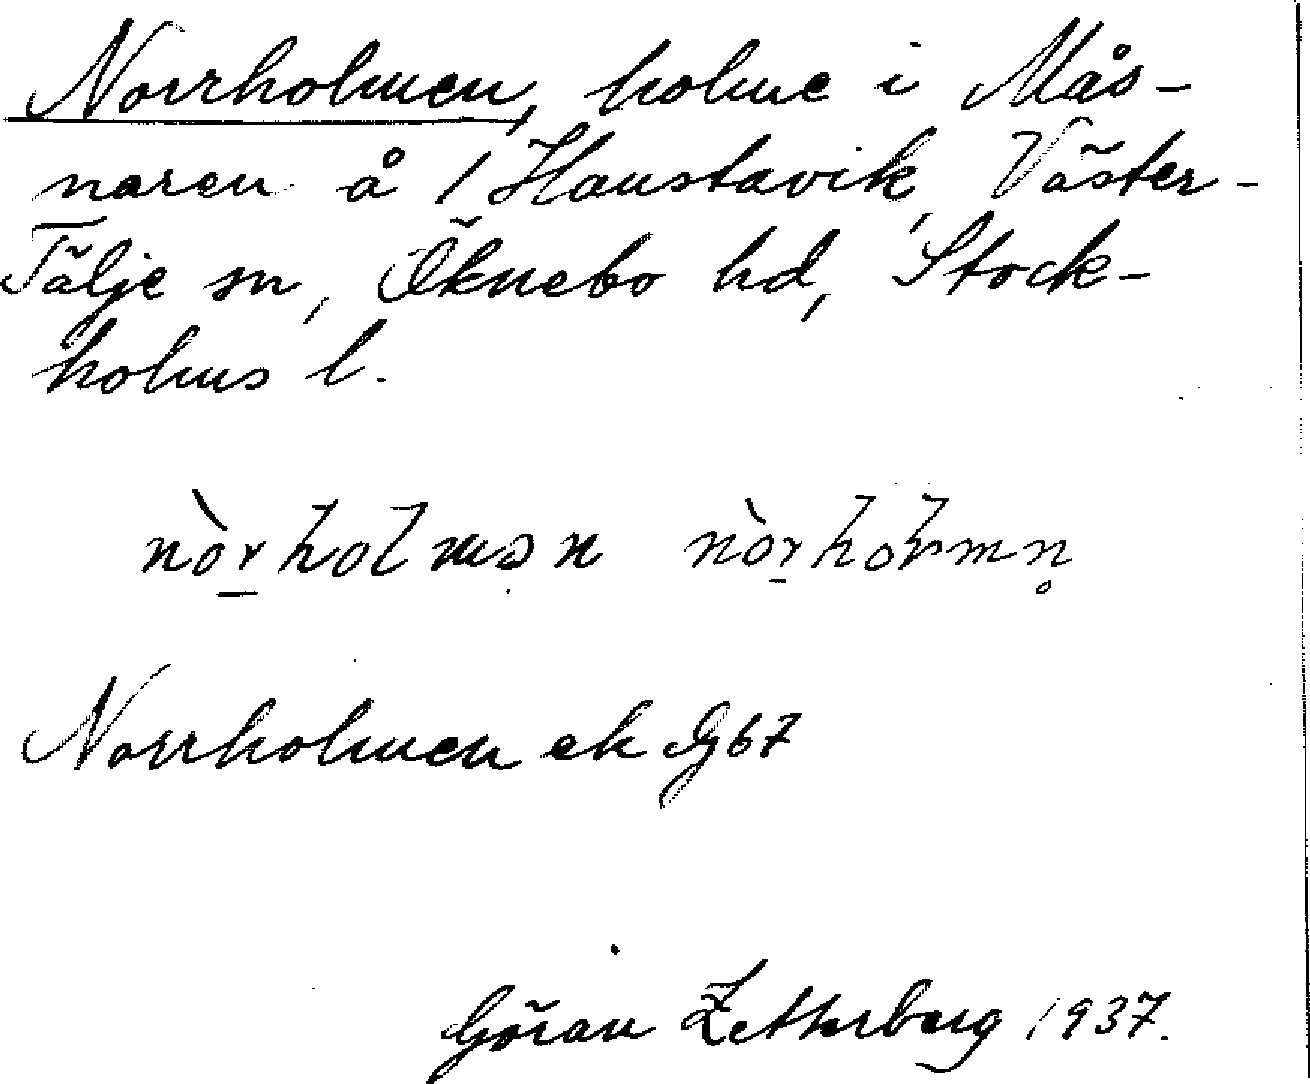 Norrholmen, holme i Mås-
naren å 1 Haustavik, Väster-
Tälje sn, Öknebo hd, Stock-
holms l.
nòrholmən nòrholmn̥
Norrholmen ek G67
Göran Zetterberg 1937.